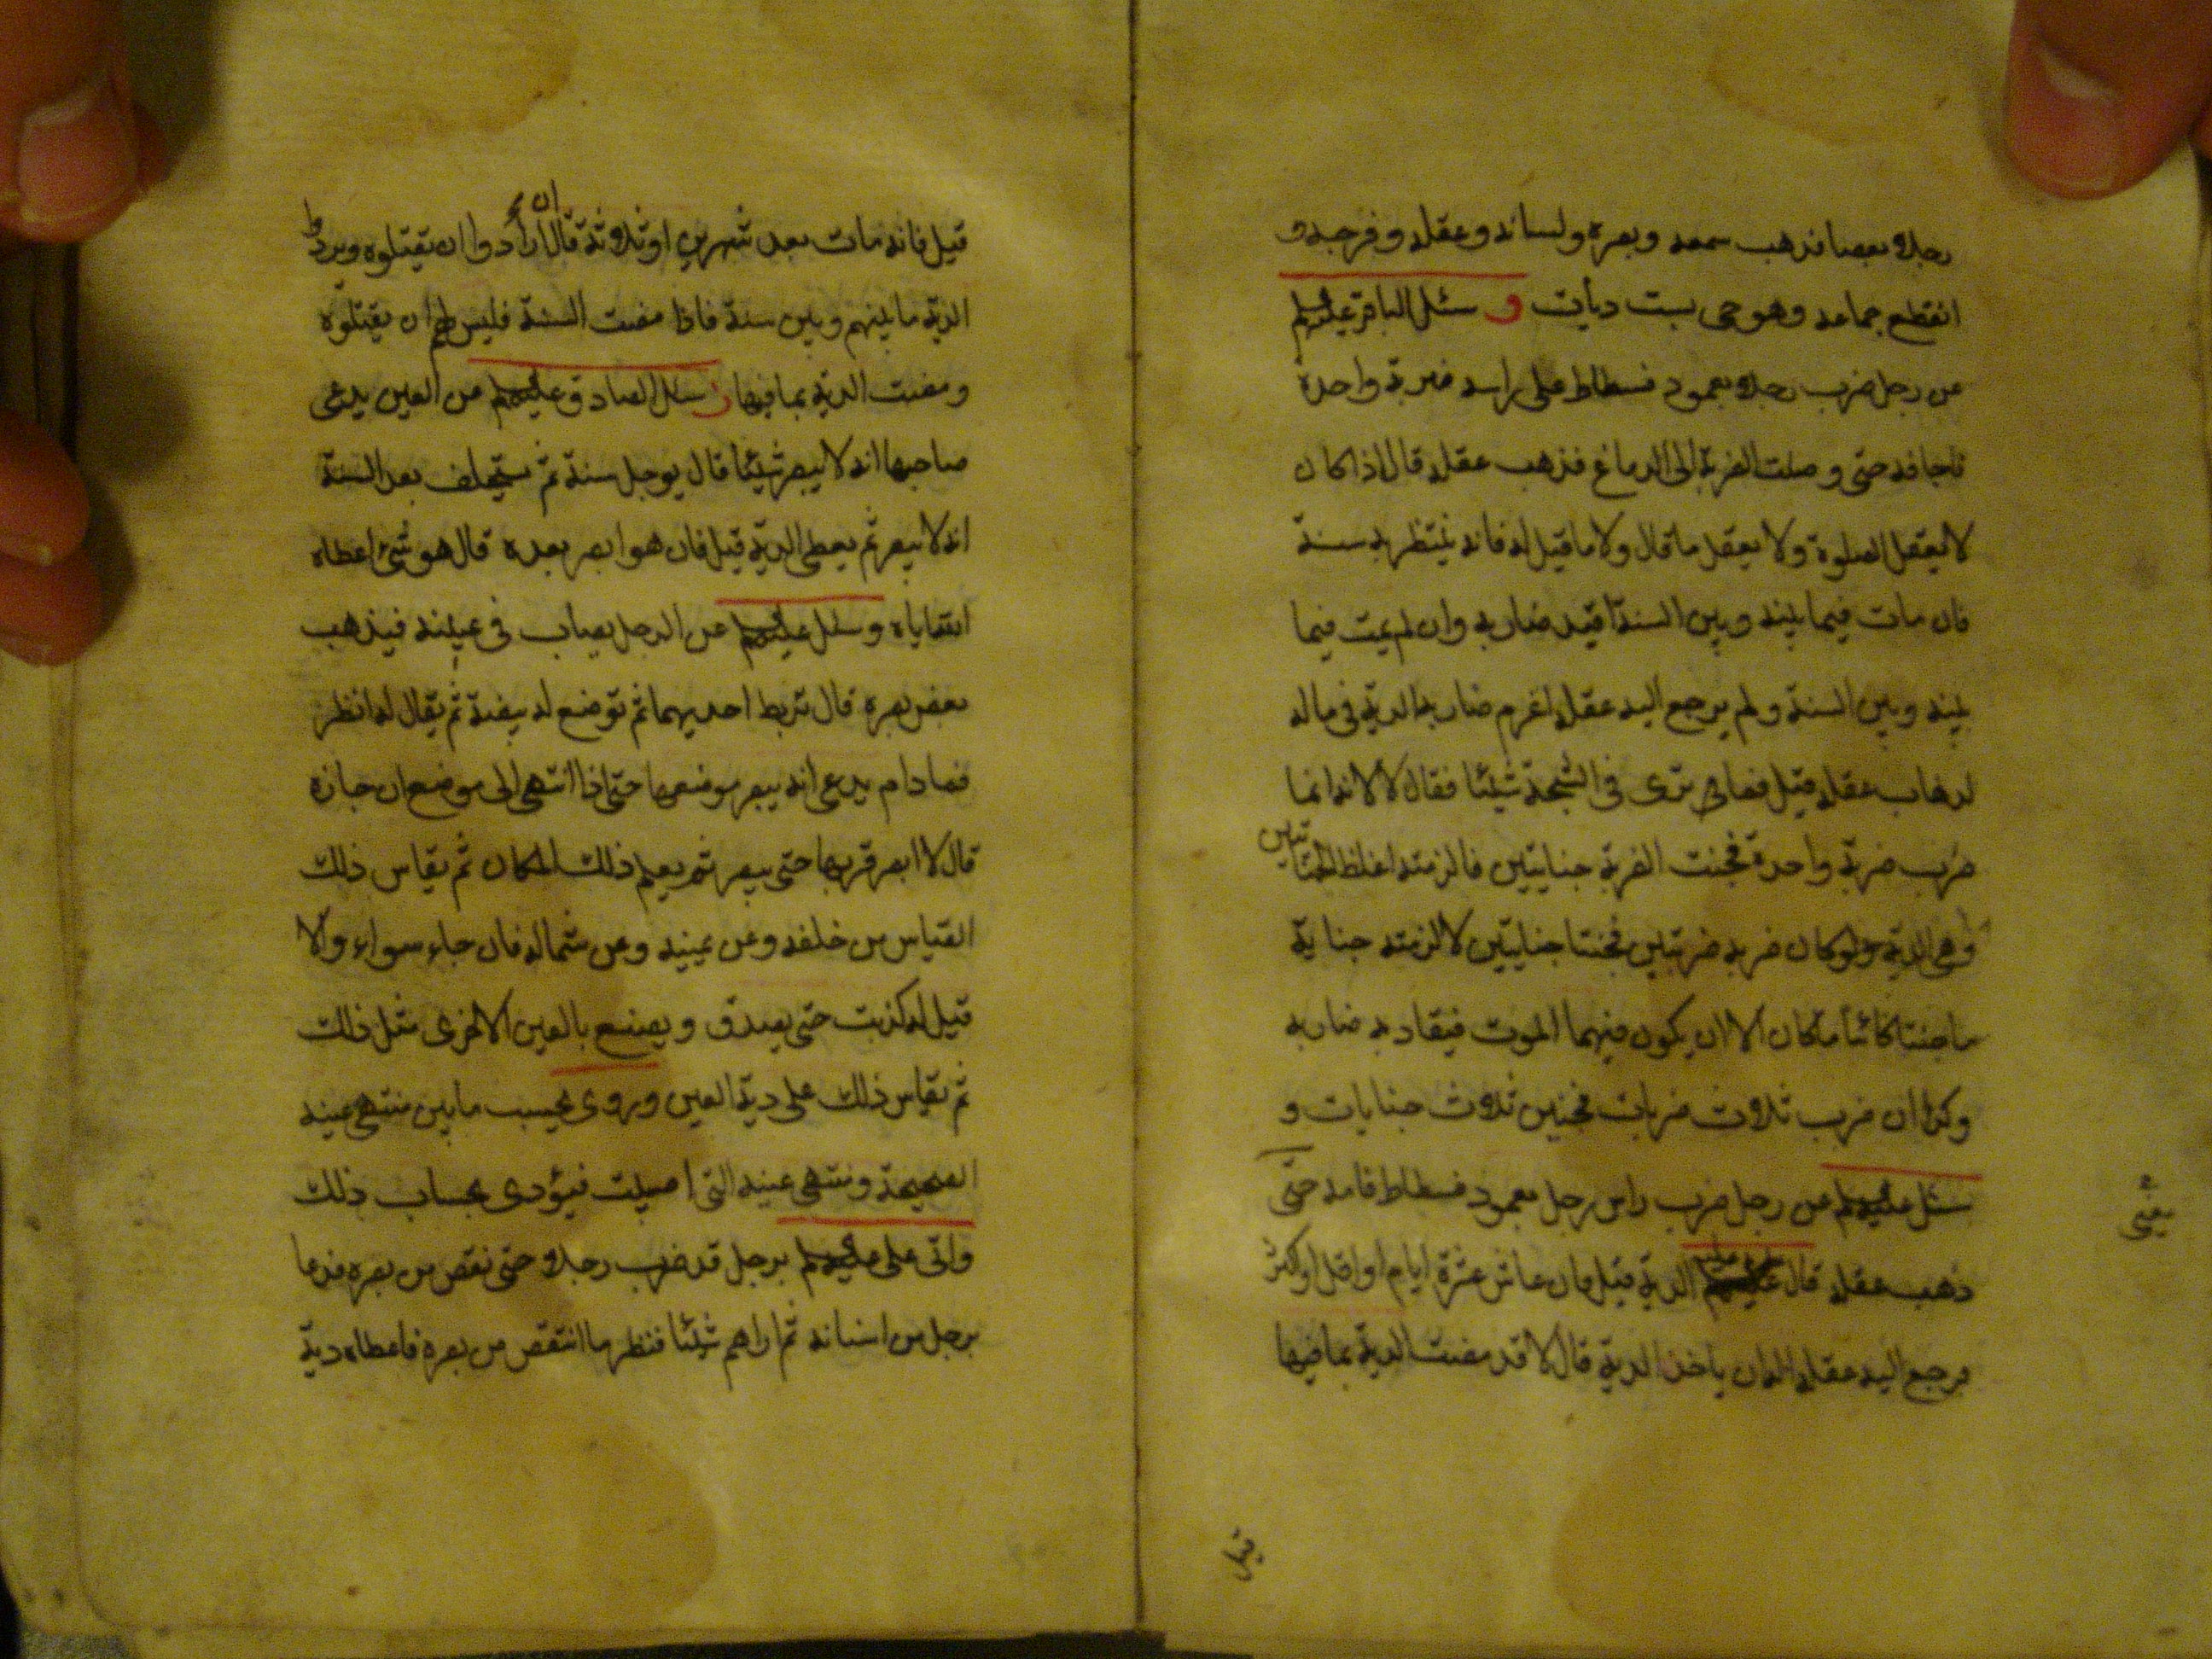 رجلا بعصا فذهب سمعه وبصره ولسانه وعقله وفرجه و
انقطع جماعه وهو حى بست ديات و سئل الباقر عليهم
عن رجل ضرب رجلا بعمود فسطاط على راسه ضربة واحدة
فاجافه حتى وصلت الضربة الى الدماغ فذهب عقله قال اذا كان
لا يعقل الصلوة ولا يعقل ما قال ولا ما قيل له فانه ينتظر به سنة
فان مات فيما بينه وبين السنة اقيد ضاربه وان لم يمت فيما
بينه وبين السنة ولم يرجع اليه عقله اغرم ضاربه الدية فى ماله
لذهاب عقله قيل فما ترى فى الشجة شيئا فقال لا لانه انما
ضرب ضربة واحدة فجنت الضربة جنايتين فالزمته اغلظ الجنايتين
وهى الدية ولو كان ضربه ضربتين فجنتا جنايتين لالزمته جناية
ما جنتا كائنا ما كان الا ان يكون فيهما الموت فيقاد به ضاربه
وكذا ان ضرب ثلاث ضربات فجنين ثلاث جنايات و
سئل عليهم عن رجل ضرب راس رجل بعمود فسطاط فامه حتى
يعنى
ذهب عقله قال عليه الدية قيل فان عاش عشرة ايام او اقل او اكثر
فرجع اليه عقله اله ان ياخذ الدية قال لا قد مضت الدية بما فيها
قيل فانه مات بعد شهرين او ثلاثة قال ان ارادوا ان يقتلوه ويردوا
الدية ما بينهم وبين سنة فاذا مضت السنة فليس لهم ان يقتلوه
ومضت الدية بما فيها و سئل الصادق عليهم عن العين يدعى
صاحبها انه لا يبصر شيئا قال يوجل سنة ثم يستحلف بعد السنة
انه لا يبصر ثم يعطى الدية قيل فان هو ابصر بعده قال هو شىء اعطاه
الله اياه وسئل عليهم عن الرجل يصاب فى عينه فيذهب
بعض بصره قال تربط احديهما ثم توضع له بيضة ثم يقال له انظر
فما دام يدعى انه يبصر موضعها حتى اذا انتهى الى موضع ان جازه
قال لا ابصر قربها حتى يبصر ثم يعلم ذلك المكان ثم يقاس ذلك
القياس من خلفه وعن يمينه وعن شماله فان جاء سواء والا
قيل له كذبت حتى يصدق ويصنع بالعين الاخرى مثل ذلك
ثم يقاس ذلك على دية العين وروى يحسب ما بين منتهى عينه
الصحيحة ومنتهى عينه التى اصيبت فيؤدى بحساب ذلك
واتى على عليهم برجل قد ضرب رجلا حتى نقص من بصره فدعا
برجل من اسنانه ثم اراهم شيئا فنظر ما انتقص من بصره فاعطاه دية